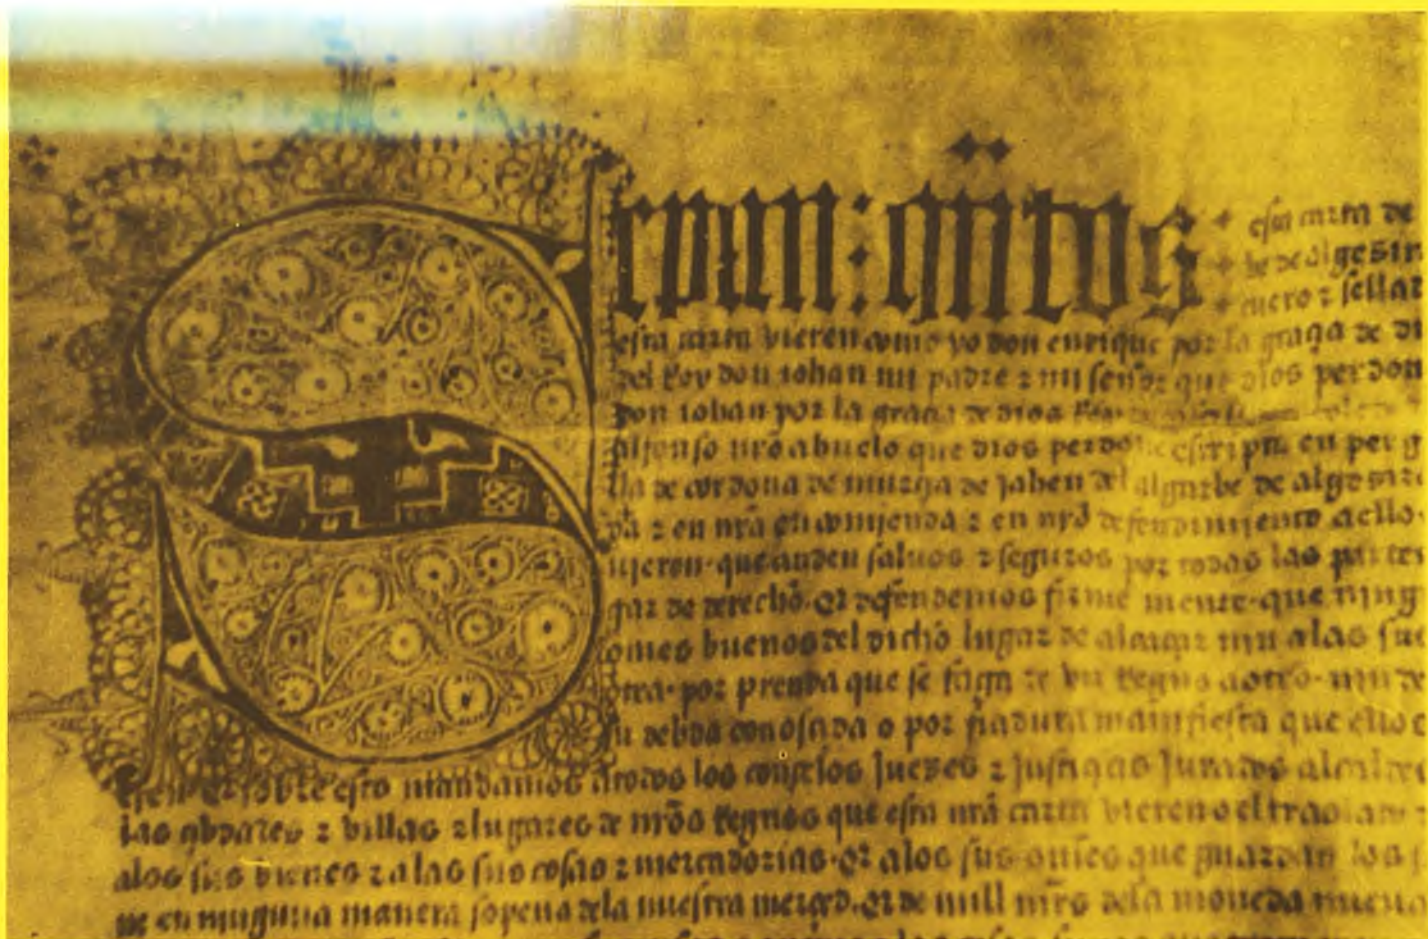 Sepan: qñtos
esta carta de
be de algesir
cuero ⁊ sellad
esta carta vieren como yo don enrique por la graçia de di
del Rey don iohan mi padre ⁊ mi señor que dios perdon
don iohan por la graçia de dios Rey
alfonso nr̃o abuelo que dios perdone escripta en perg
lla de cordoua de murçia de jahen del algarbe de algesira
da ⁊ en nr̃a encomienda ⁊ en nr̃o defendimiento a ello
uieron que anden saluos ⁊ seguros por todas las partes
gar de derecho. Et defendemos firme mente que ning
omes buenos del dicho lugar de nin a las su
tra por prenda que se faga de vn Regno a otro nin de
su debda conosçida o por fiadura manifiesta que ellos
sobre esto mandamos a todos los conçeios Jueses ⁊ justiçias Jurados alcaldes
las çibdades ⁊ villas ⁊ lugares de nr̃os Regnos que esta nr̃a carta vieren o el traslad
a los sus bienes ⁊ a las sus cosas ⁊ mercadorias. Et a los sus omes que guardan los
de en ninguna manera so pena de la nuestra merçed. Et de mill mr̃s de la moneda nueua